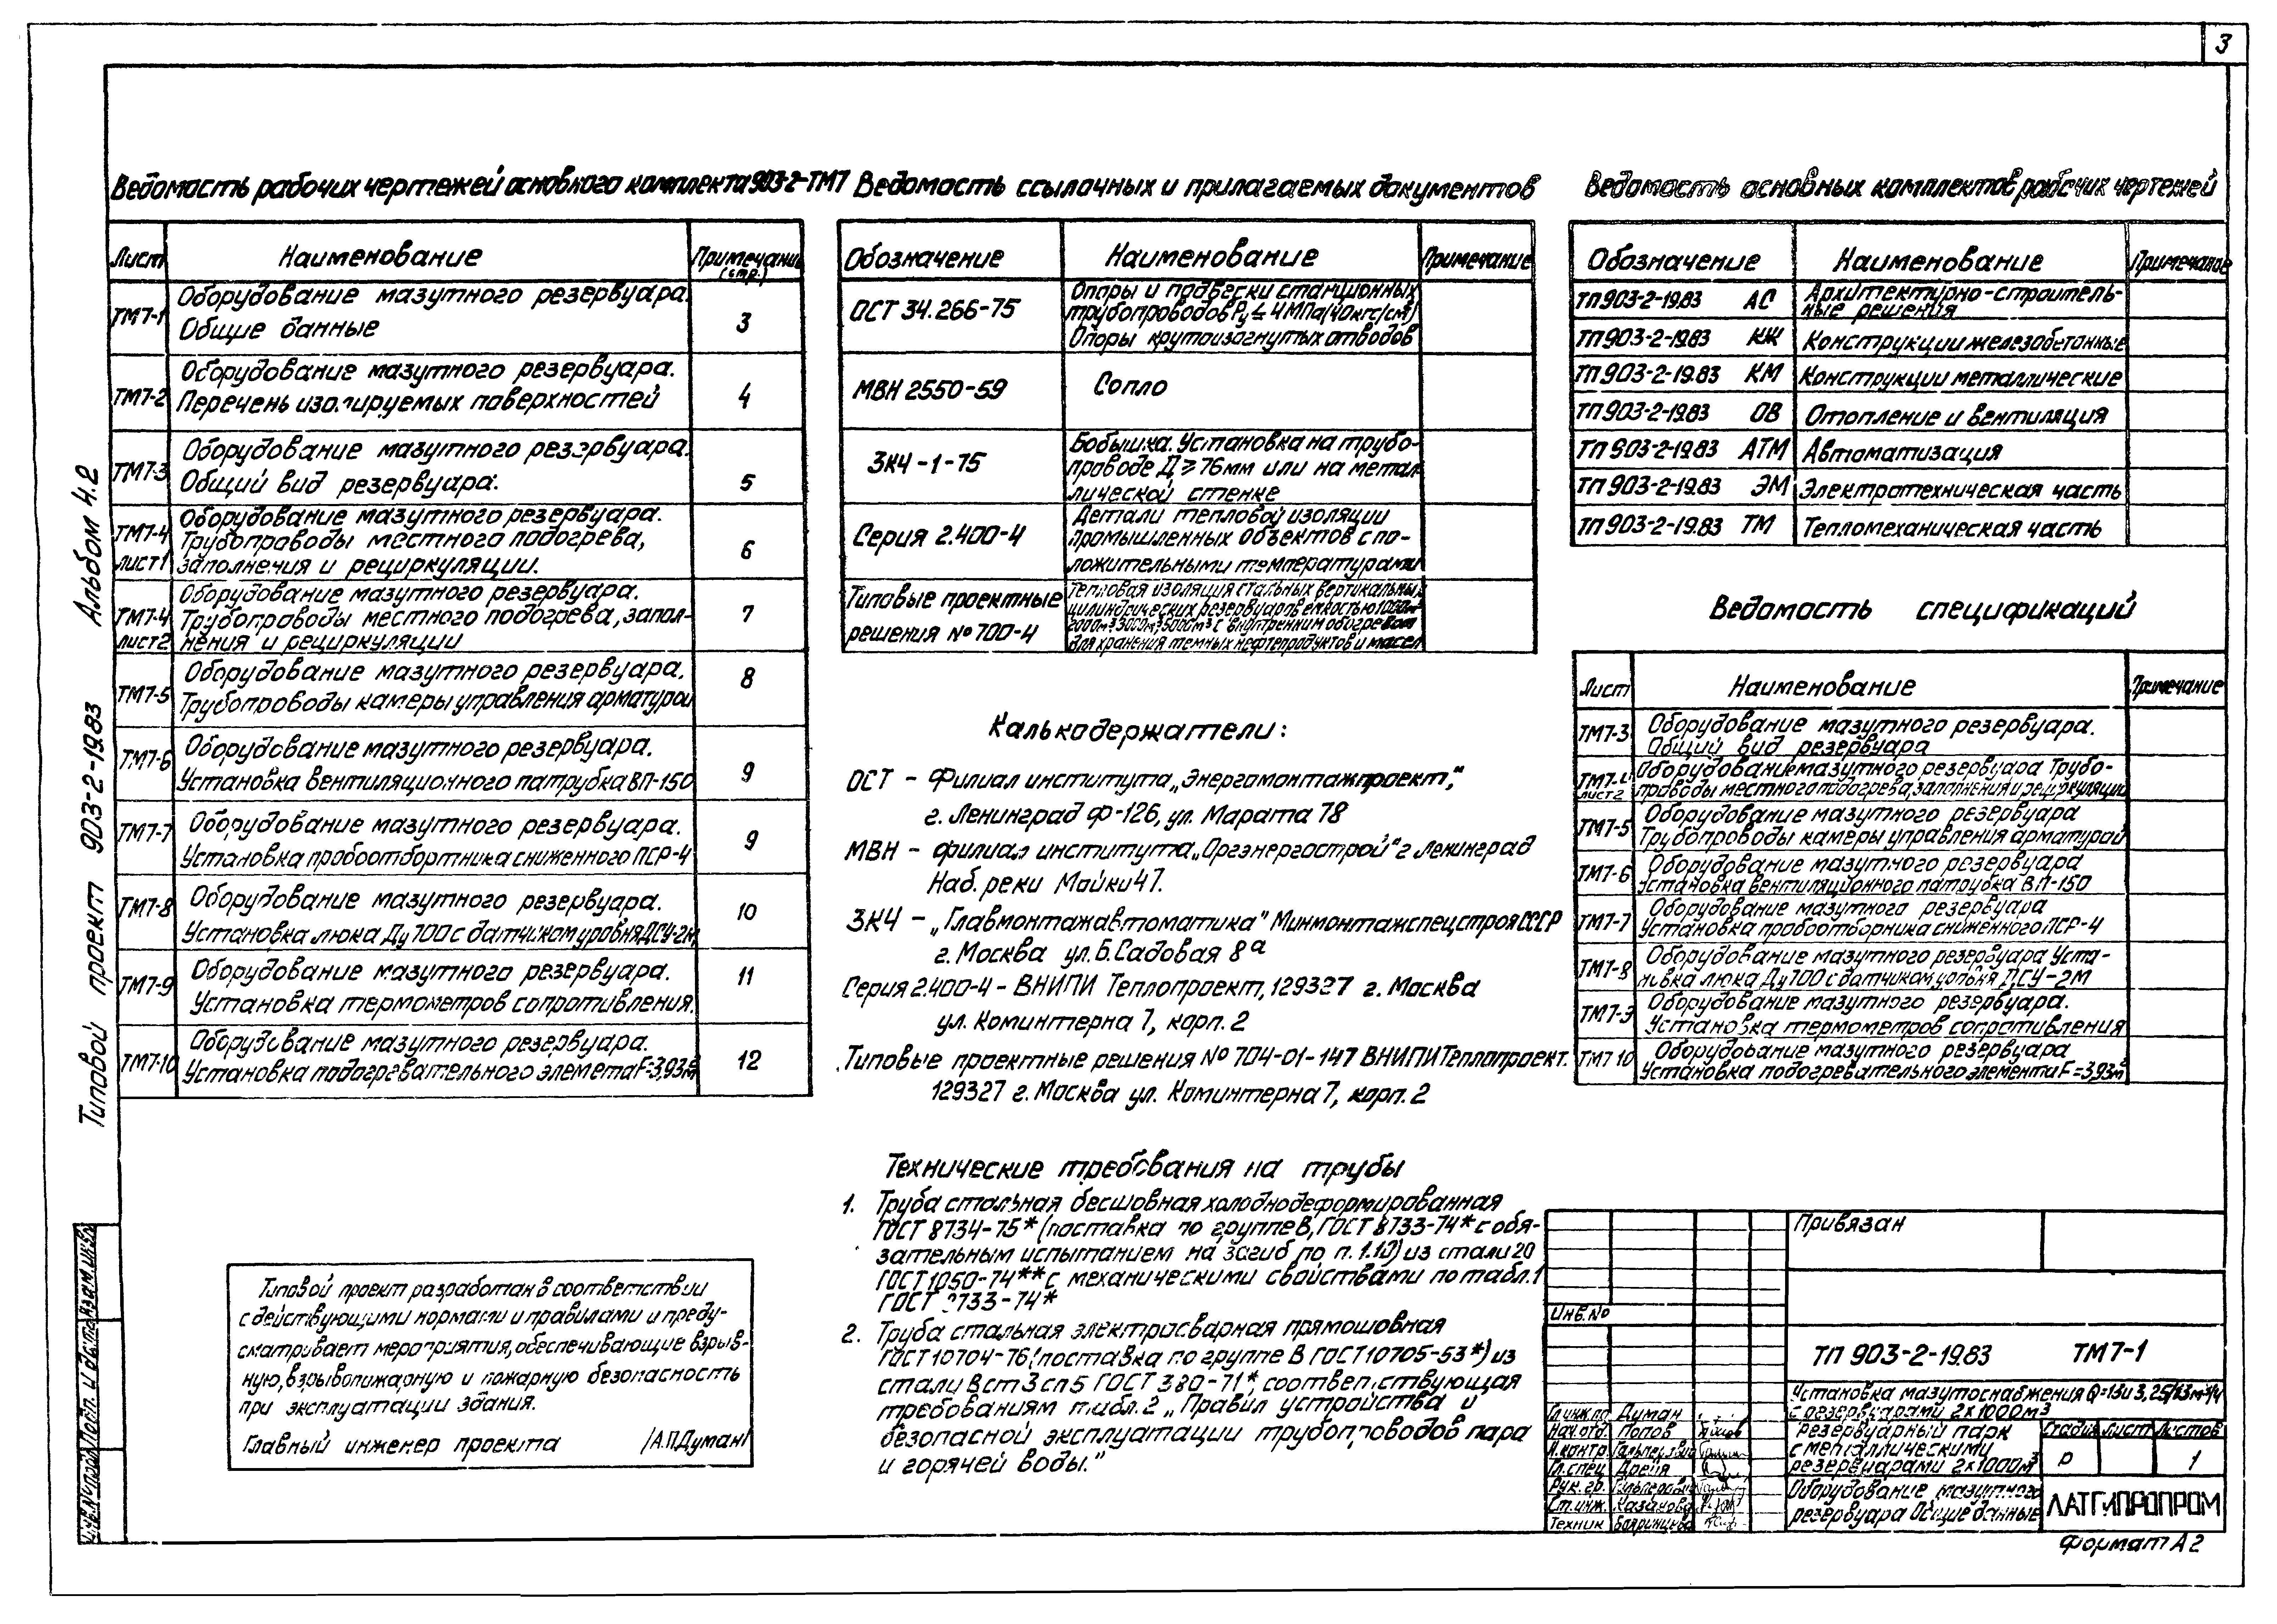 3
Ведомость рабочих чертежей основного комплекта 903-2-ТМ7
Лист Наименование Примечание (стр.)
ТМ7-1 Оборудование мазутного резервуара.
Общие данные 3
ТМ7-2 Оборудование мазутного резервуара.
Перечень изолируемых поверхностей 4
ТМ7-3 Оборудование мазутного резервуара.
Общий вид резервуара. 5
ТМ7-4 Оборудование мазутного резервуара.
Трубопроводы местного подогрева,
лист1 заполнения и рециркуляции. 6
Оборудование мазутного резервуара.
ТМ7-4 Трубопроводы местного подогрева, запол- 7
лист2 нения и рециркуляции
ТМ7-5 Оборудование мазутного резервуара. 8
Трубопроводы камеры управления арматурой
ТМ7-6 Оборудование мазутного резервуара.
Установка вентиляционного патрубка ВП-150 9
ТМ7-7 Оборудование мазутного резервуара.
Установка пробоотбортника сниженного ПСР-4 9
ТМ7-8 Оборудование мазутного резервуара.
Установка люка Ду700 с датчиком уровня ДСУ-2м 10
ТМ7-9 Оборудование мазутного резервуара. 11
Установка термометров сопротивления.
ТМ7-10 Оборудование мазутного резервуара.
Установка подогревательного элемета F=3,93м² 12
Ведомость ссылочных и прилагаемых документов
Обозначение Наименование Примечание
ОСТ 34.266-75 Опоры и подвески станционных
трубопроводов Ру ≤ 4 МПа (40кгс/см²)
Опоры крутоизогнутых отводов
МВН 2550-59 Сопло
ЗКЧ-1-75 Бобышка. Установка на трубо-
проводе Д ≥ 76мм или на метал
лической стенке
Серия 2.400-4 Детали тепловой изоляции
промышленных объектов с по-
ложительными температурами
Типовые проектные
решения № 700-4
Тепловая изоляция стальных вертикальных
цилиндрических резервуаров емкостью 1000м³
2000м³ 3000м³, 5000м³ с внутренним обогревом
для хранения темных нефтепродуктов и масел
Калькодержатели:
ОСТ – Филиал института „Энергомонтажпроект,“
г. Ленинград Ф-126, ул. Марата 78
МВН – филиал института „Оргэнергострой“ г Ленинград
Наб. реки Мойки 47.
ЗКЧ – „Главмонтажавтоматика“ Минмонтажспецстроя СССР
г. Москва ул. Б. Садовая 8а
Серия 2.400-4 – ВНИПИ Теплопроект, 129327 г. Москва
ул. Коминтерна 7, корп. 2
Типовые проектные решения № 704-01-147 ВНИПИ Теплопроект.
129327 г. Москва ул. Коминтерна 7, корп. 2
Технические требования на трубы
1. Труба стальная бесшовная холоднодеформированная
ГОСТ 8734-75* (поставка по группе В, ГОСТ 8733-74* с обя-
зательным испытанием на загиб по п. 1.10) из стали 20
ГОСТ 1050-74** с механическими свойствами по табл. 1
ГОСТ 8733-74*
2. Труба стальная электросварная прямошовная
ГОСТ 10704-76 (поставка по группе В ГОСТ 10705-63*) из
стали Вст3сп5 ГОСТ 380-71*, соответствующая
требованиям табл. 2 „Правил устройства и
безопасной эксплуатации трубопроводов пара
и горячей воды.“
Ведомость основных комплектов рабочих чертежей
Обозначение Наименование Примечание
ТП 903-2-19.83 АС Архитектурно-строитель-
ные решения
ТП 903-2-19.83 КЖ Конструкции железобетонные
ТП 903-2-19.83 КМ Конструкции металлические
ТП 903-2-19.83 ОВ Отопление и вентиляция
ТП 903-2-19.83 АТМ Автоматизация
ТП 903-2-19.83 ЭМ Электротехническая часть
ТП 903-2-19.83 ТМ Тепломеханическая часть
Ведомость спецификаций
Лист Наименование Примечание
ТМ7-3 Оборудование мазутного резервуара.
Общий вид резервуара
ТМ7-4 Оборудование мазутного резервуара Трубо-
лист2 проводы местного подогрева, заполнения и рециркуляции
ТМ7-5 Оборудование мазутного резервуара
Трубопроводы камеры управления арматурой
ТМ7-6 Оборудование мазутного резервуара
Установка вентиляционного патрубка ВП-150
ТМ7-7 Оборудование мазутного резервуара
Установка пробоотборника сниженного ПСР-4
ТМ7-8 Оборудование мазутного резервуара Уста-
новка люка Ду700 с датчиком уровня ДСУ-2М
ТМ7-9 Оборудование мазутного резервуара.
Установка термометров сопротивления
ТМ7 10 Оборудование мазутного резервуара
Установка подогревательного элементи F=3,93м²
Типовой проект разработан в соответствии
с действующими нормами и правилами и преду-
сматривает мероприятия, обеспечивающие взрыв-
ную, взрывопожарную и пожарную безопасность
при эксплуатации здания.
Главный инженер проекта /А.П.Думан/
Типовой проект 903-2-19.83 Альбом 4.2
Инв.№ подл. Подп. и дата Взам.инв.№
Привязан
Инв.№
ТП 903-2-19.83 ТМ7-1
Установка мазутоснабжения Q=13 и 3,25/13 м³/ч
с резервуарами 2×1000м³
Гл.инж.пр. Думан
Нач.отд. Попов
Н.контр. Гальперина
Гл.спец Дрейя
Рук.гр. Гальперина
Ст.инж. Казанова
Техник
Резервуарный парк
с металлическими
резервуарами 2×1000м³
Стадия Лист Листов
Р 1
Оборудование мазутного
резервуара Общие данные
ЛАТГИПРОПРОМ
Формат А2